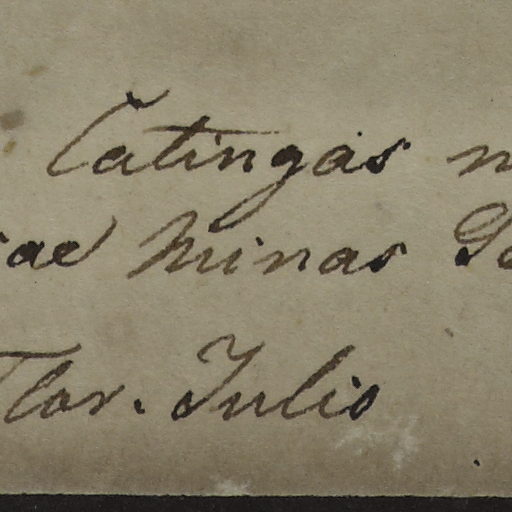 Catingas
Minas
Flor. Julio